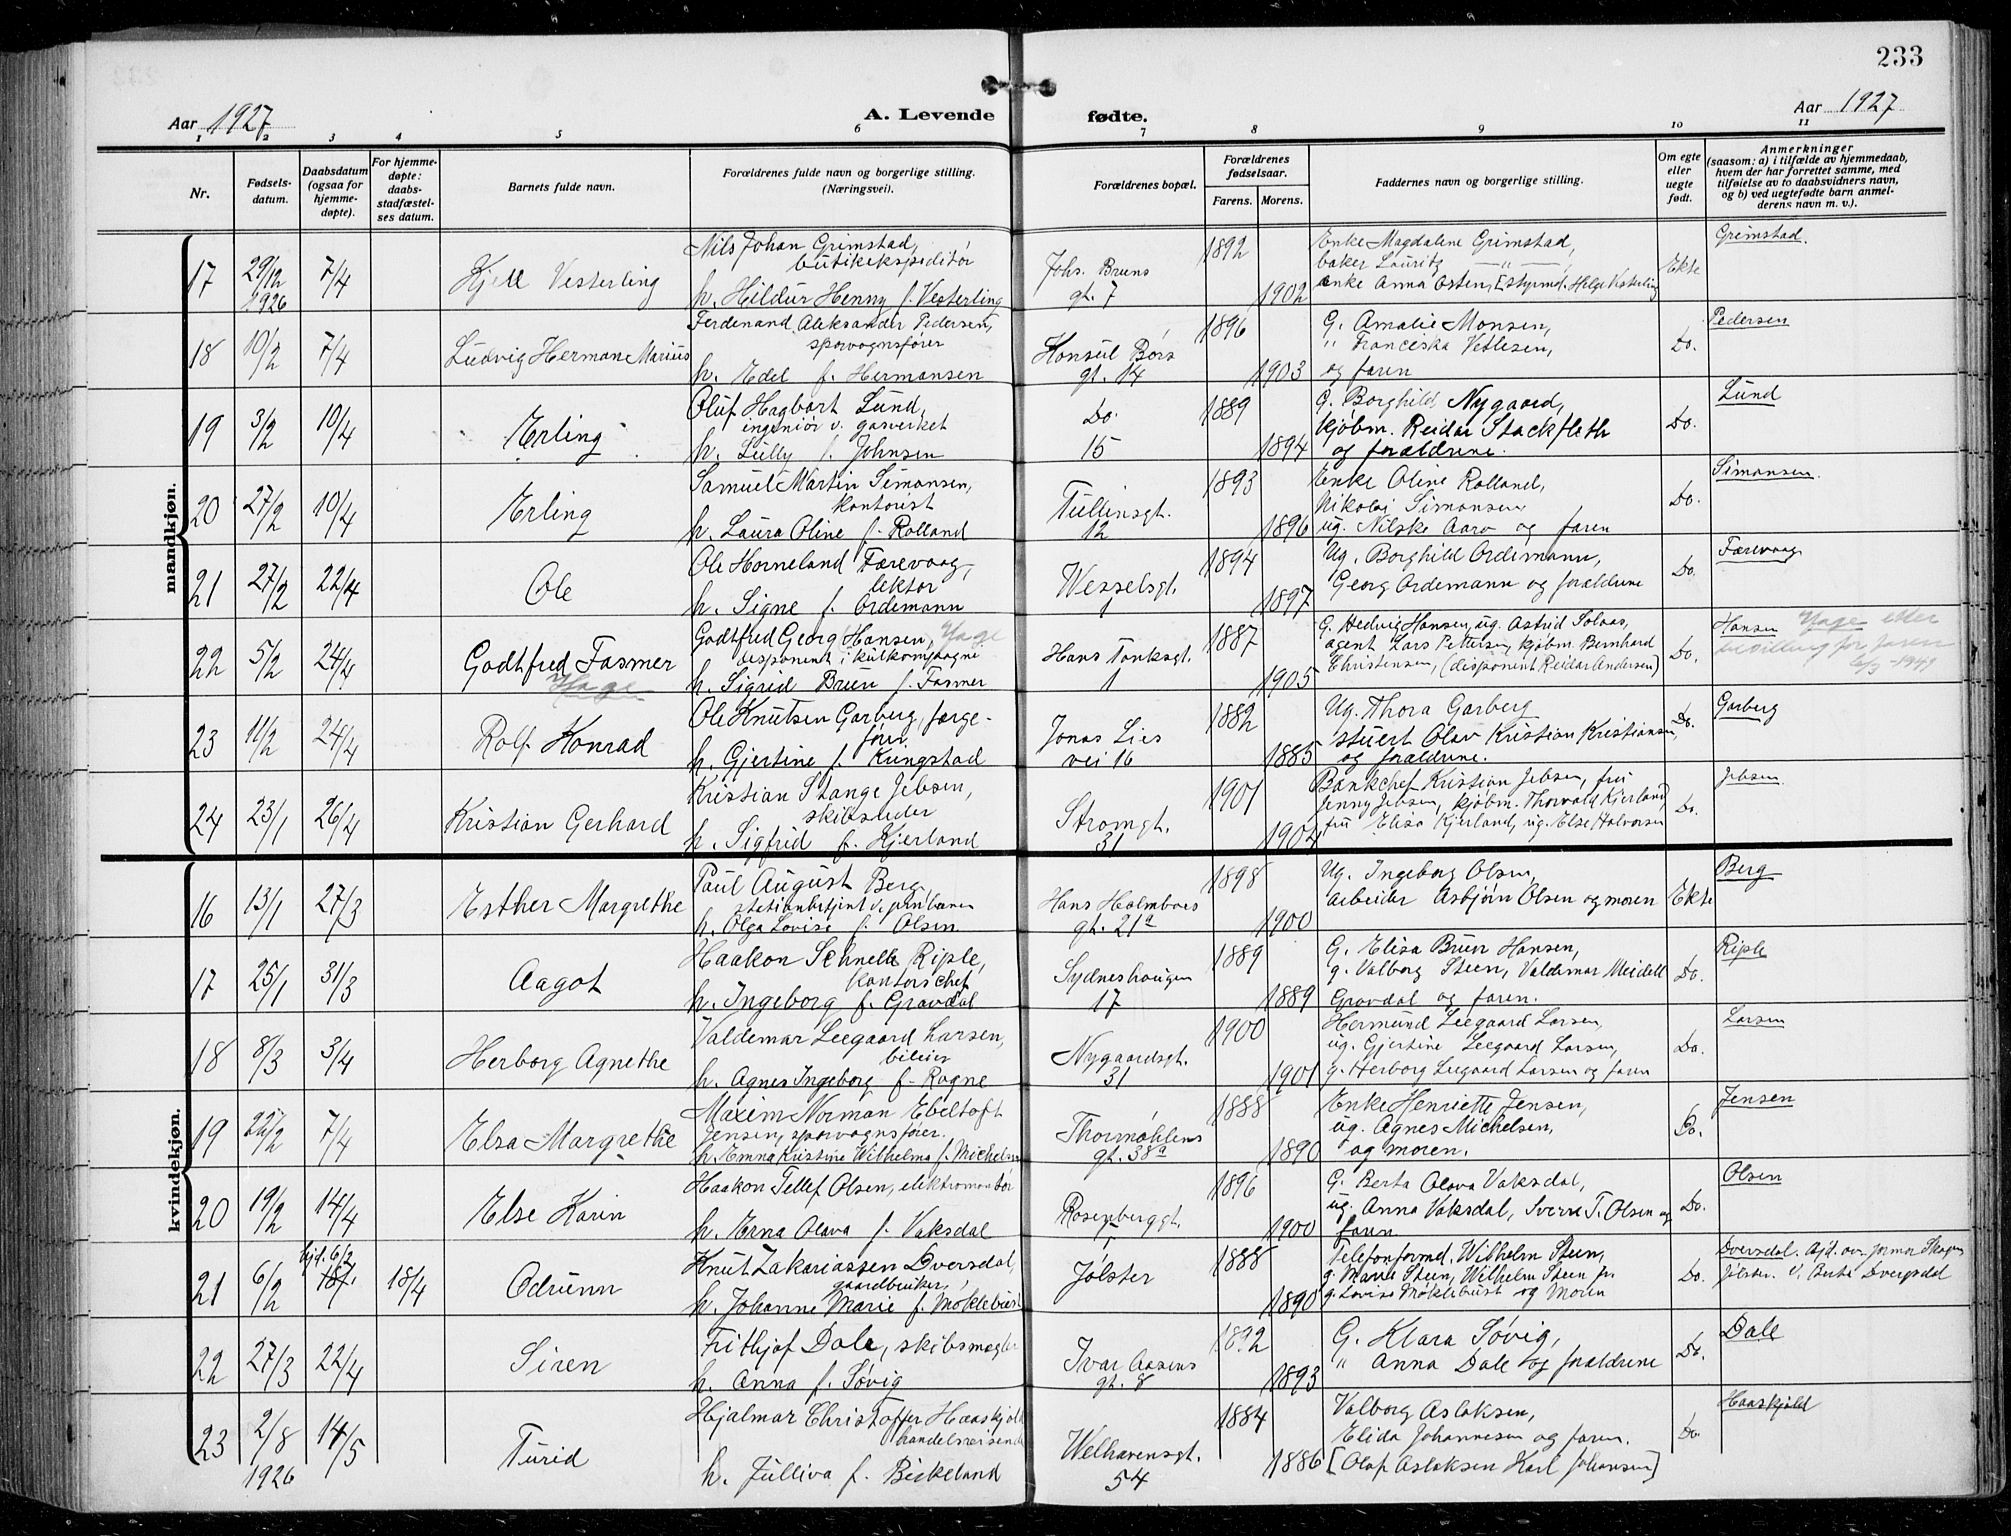 233
Aar 1927
A. Levende fødte.
Aar 1927
1 2 3 4 5 6 7 8 9 10 11
Nr.
Fødsels-
datum.
Daabsdatum
(ogsaa for
hjemme-
døpte).
For hjemme-
døpte:
daabs-
stadfæstel-
ses datum.
Barnets fulde navn.
Forældrenes fulde navn og borgerlige stilling.
(Næringsvei).
Forældrenes bopæl.
Forældrenes
fødselsaar.
Farens. Morens.
Faddernes navn og borgerlige stilling.
Om egte
eller
uegte
født.
Anmerkninger
(saasom: a) i tilfælde av hjemmedaab,
hvem der har forrettet samme, med
tilføielse av to daabsvidners navn,
og b) ved uegtefødte barn anmel-
derens navn m. v.).
mandkjøn.
17 29/12 1926 7/4 Kjell Vesterling
Nils Johan Grimstad,
butikekspeditør
h. Hildur Henny f. Vesterling
Johs. Bruns
gt. 7
1892 1902
Enke Magdalene Grimstad,
baker Lauritz — " —,
enke Anna Osten, [styrmd. Helge Vesterling
Ekte
Grimstad.
18 10/2 7/4 Ludvig Herman Marius
Ferdinand Aleksander Pedersen,
sporvognsfører
h. Edel f. Hermansen
Konsul Børs
gt. 14
1896 1903
G. Amalie Monsen,
" Franciska Vetlesen,
og faren
Do.
Pedersen
19 3/2 10/4 Erling
Oluf Hagbart Lund,
ingeniør v. gasverket
h. Lully f. Johnsen
Do.
15
1889 1894
G. Borghild Nygaard,
kjøbm. Reidar Stackfleth
og forældrene.
Do.
Lund
20 27/2 10/4 Erling
Samuel Martin Simonsen,
kontorist
h. Laura Oline f. Rolland
Tullinsgt.
12
1893 1896
Enke Oline Rolland,
Nikolai Simonsen
ug. Nilske Aarø og faren
Do.
Simonsen
21 27/2 22/4 Ole
Ole Horneland Færevaag,
lektor
h. Signe f. Ordemann
Wesselsgt.
1
1894 1897
Ug. Borghild Ordemann,
Georg Ordemann og forældrene
Do.
Færevaag
22 5/2 24/4 Godtfred Fasmer
Hage
Godtfred Georg Hansen, Hage
disponent i kulkompagni
h. Sigrid Bruen f. Fasmer
Hans Tanksgt.
1
1887 1905
G. Hedvig Hansen, ug. Astrid Solaas,
agent Lars Pettersen, kjøbm. Bernhard
Christensen, (disponent Reidar Andersen)
Do.
Hansen Hage etter
bevilling for faren
1949
23 11/2 24/4 Rolf Konrad
Ole Knutsen Garberg, farge-
fører.
h. Gjertine f. Kungstad
Jonas Lies
vei 16
1882 1885
Ug. Thora Garberg
stuert Olav Kristian Kristiansen,
og forældrene.
Do.
Garberg
24 23/1 26/4 Kristian Gerhard
Kristian Stange Jebsen,
skibsreder
h. Sigfrid f. Kjerland
Strømgt.
31
1901 1904
Bankchef Kristian Jebsen, fru
Jenny Jebsen, kjøbm. Thorvald Kjerland,
fru Elisa Kjerland, ug. Else Halvorsen
Do.
Jebsen
kvindekjøn.
16 13/1 27/3 Esther Margrethe
Paul August Berg,
stationbetjent v. jernbanen
h. Olga Lovise f. Olsen
Hans Holmboes
gt. 21a
1898 1900
Ug. Ingeborg Olsen,
arbeider Asbjørn Olsen og moren
Ekte
Berg
17 25/1 31/3 Aagot
Haakon Schnelle Riple,
kontorschef
h. Ingeborg f. Gravdal
Sydneshaugen
17
1889 1889
G. Elisa Bruun Hansen,
g. Valborg Steen, Valdemar Meidell
Gravdal og faren.
Do.
Riple
18 8/3 3/4 Herborg Agnethe
Valdemar Leegaard Larsen,
bileier
h. Agnes Ingeborg f. Rogne
Nygaardsgt.
31
1900 1901
Hermund Leegaard Larsen,
ug. Gjertine Leegaard Larsen,
g. Herborg Leegaard Larsen og faren
Do.
Larsen
19 22/2 7/4 Elsa Margrethe
Maxim Norman Ebeltoft
Jensen, sporvognsfører.
h. Emna Kristine Wilhelma f. Michelsen
Thormøhlens
gt. 38a
1888 1890
Enke Henriette Jensen,
ug. Agnes Michelsen,
og moren.
Do.
Jensen
20 19/2 14/4 Else Karin
Haakon Tellef Olsen, elektromontør
h. Erna Olava f. Vaksdal
Rosenberggt.
1896 1900
G. Berta Olava Vaksdal,
ug. Anna Vaksdal, Sverre T. Olsen og
faren
Do.
Olsen
21 6/2 hjd. 6/2 18/4 18/4 Odrunn
Knut Zakariassen Dversdal,
gaardbruker,
h. Johanne Marie f. Møklebust
Jølster
1888 1890
Telefonformd. Wilhelm Steen,
g. Marie Steen, Wilhelm Steen jr.
g. Lovise Møklebust og moren
Do.
Dversdal. Hjd. av jormor Skagen
Jølster. V. Berte Dvergsdal
22 27/3 22/4 Siren
Frithjof Dale, skibsmegler
h. Anna f. Søvig
Ivar Aasens
gt. 8
1892 1893
G. Klara Søvig,
" Anna Dale og forældrene
Do.
Dale
23 2/8 1926 14/5 Turid
Hjalmar Christoffer Haaskjold
handelsreisende
h. Julliva f. Birkeland
Welhavensgt.
54
1884 1886
Valborg Aslaksen,
Elida Johannesen og faren.
[Olaf Aslaksen Karl Johansen]
Do
Haaskjold